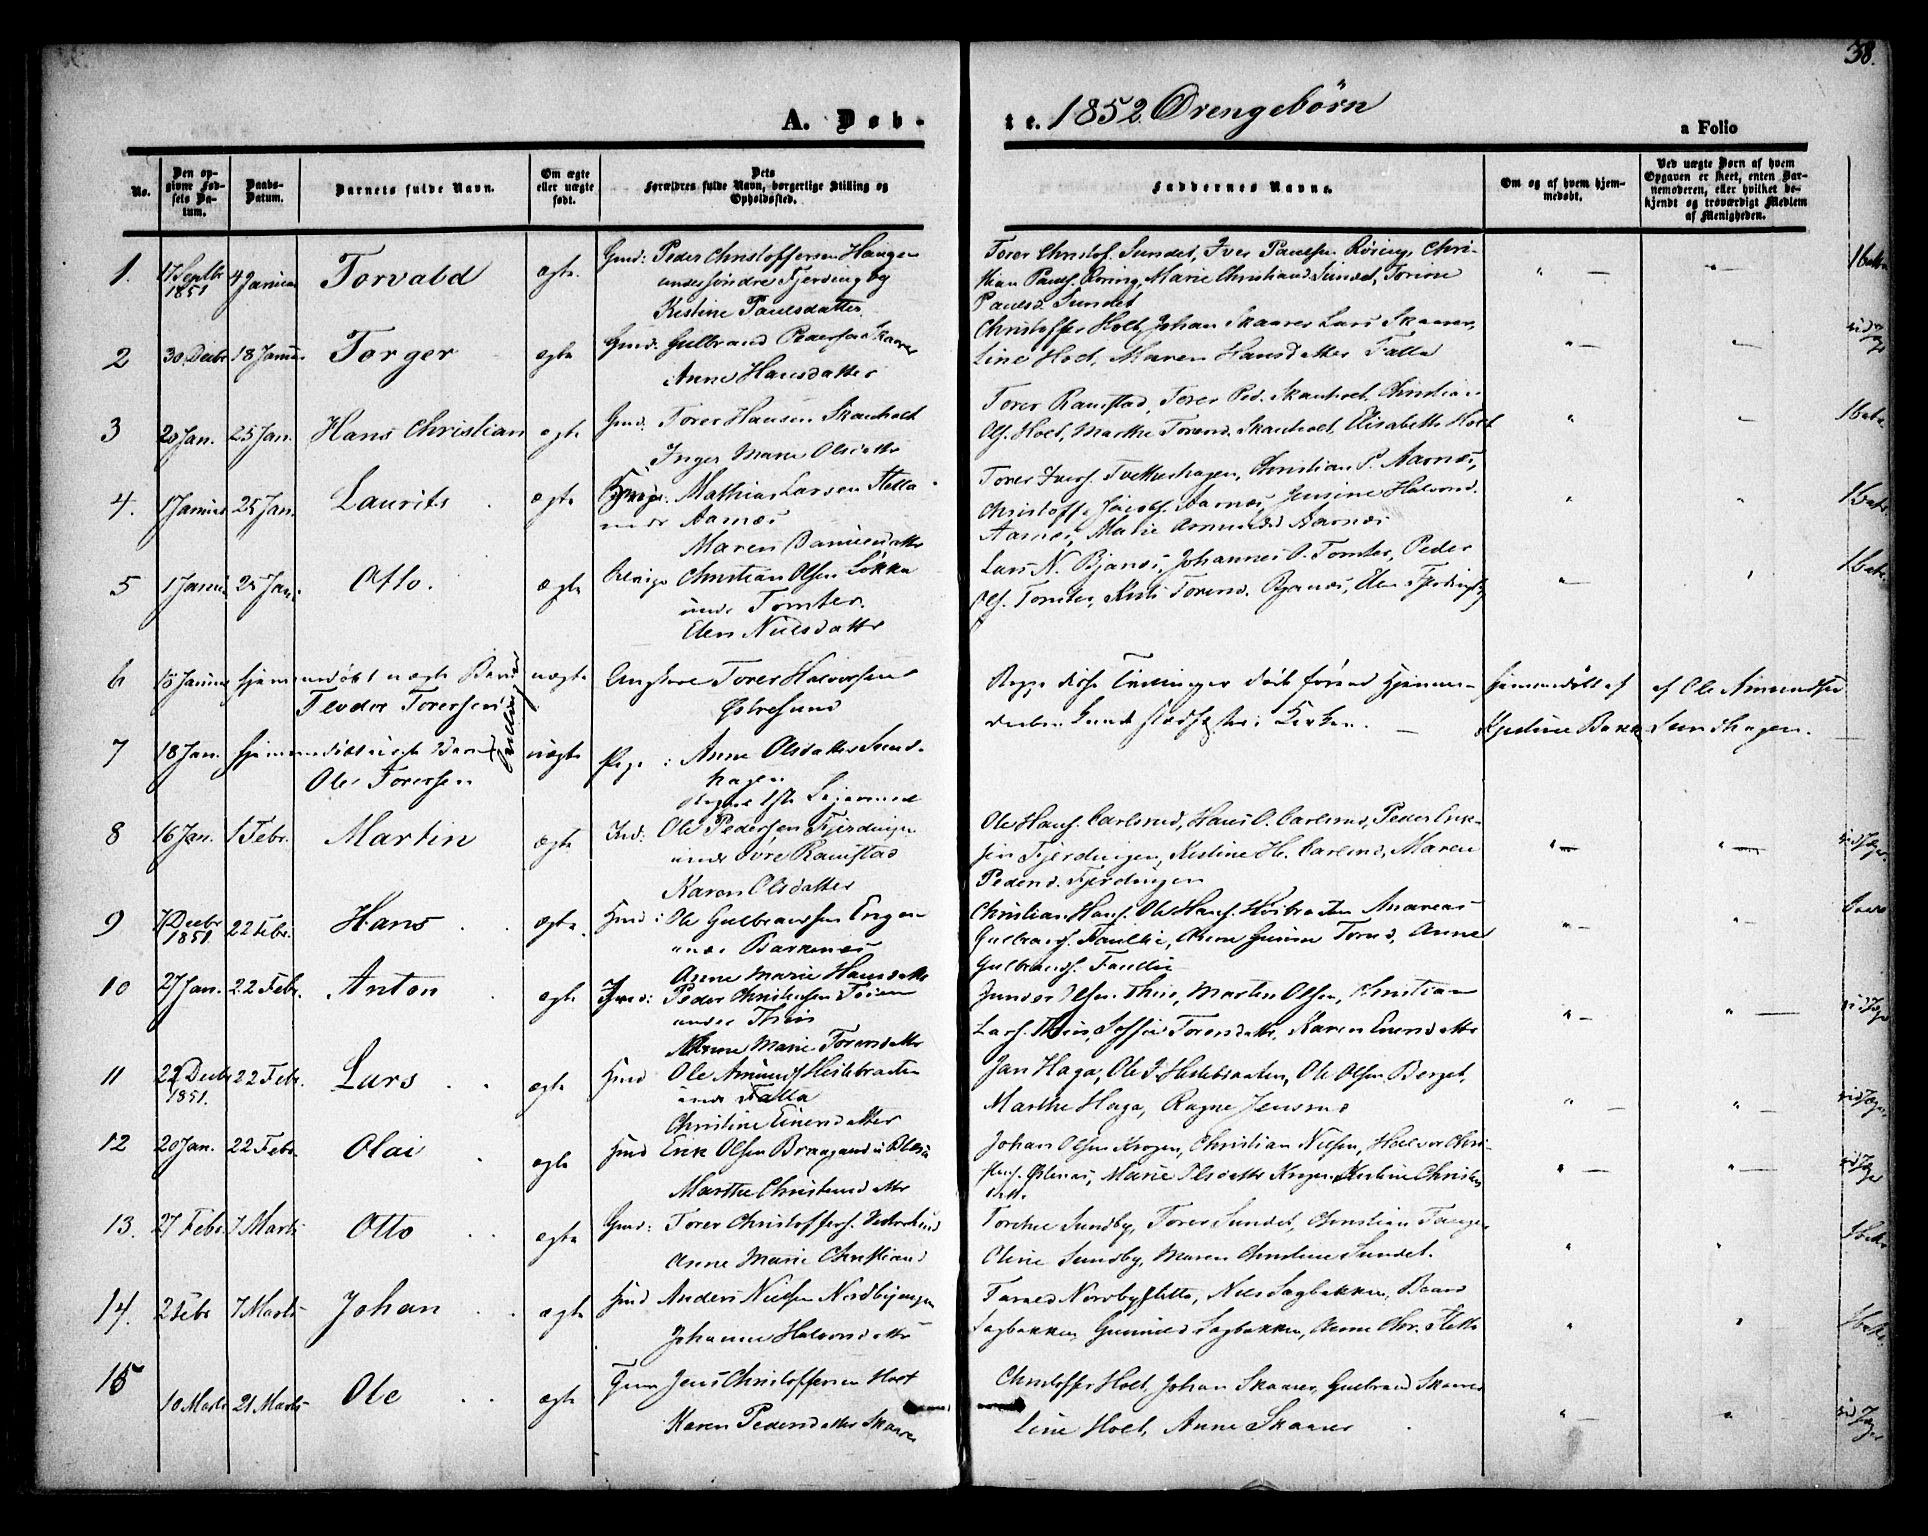 38.
A. Døb-
te. 1852 Drengebörn
a Folio
No.
Den op-
givne Fød-
sels Da-
tum.
Daabs-
Datum.
Barnets fulde Navn.
Om ægte
eller uægte
født.
Dets
Forældres fulde Navn, borgerlige Stilling og
Opholdssted.
Faddernes Navne.
Om og af hvem hjem-
medøbt.
Ved uægte Børn af hvem
Opgaven er skeet, enten Bar-
nemoderen, eller hvilket be-
kjendt og troværdigt Medlem
af Menigheden.
1. 17 Septbr 1851 4 Januar Torvald ægte Gmd: Peder Christoffersen Haugen
under söndre Fjerdingby
Kistine Paulsdatter
Torer Christof. Sundet, Iver Paulsen Röring, Chri-
stian Pauls. Röring, Marie Christiansd Sundet, Torine
Paulsd. Sundet
2 30 Decbr 18 Januar Torger ægte Gmd: Gulbrand Pedersen Skaarer
Anne Hansdatter
Christoffer Holt, Johan Skaarer Lars Skaarer,
Line Holt, Maren Hansdatter Tatta
3 20 Jan. 25 Jan. Hans Christian ægte Gmd: Torer Hansen Skanholt
Inger Marie Olsdatter
Torer Ramstad, Torer Ped. Skanholt, Christian
Ols. Holt, Marthe Torersd. Skanholt, Elisabeth Holt
4. 1 Januar 25 Jan. Laurits ægte Mathias Larsen Sletta
under Aarnæs
Maren Danielsdatter
Torer Ivers. Tvetterhagen, Christian P. Aarnæs,
Christoffer Jacobs. Aarnæs, Jensine Halvorsd.
Aarnæs, Marie Amundsd Aarnæs
5 1 Januar 25 Jan. Otto. ægte Christian Olsen Løkka
under Tomter.
Elen Nielsdatter
Lars N. Bjanæs, Johannes O. Tomter, Peder
Ols. Tomter, Kisti Torersd. Bjanæs, Elen Fjerdingby
6 18 Januar hjemmedöbt uægte Barn
Teodor Torersen
Tvilling
uægte Ungkarl Torer Halvorsen
Østresund
Begge disse Tvillinger döde förend Hjemme-
daaben kunde stadfæstes i Kirken.
hjemmedöbt af
Kjestine Bakk
af Ole Amundsen
Sundhagen.
7 18 Jan. hjemmedöbt uægte Barn
Ole Torersen
uægte Pige: Anne Olsdatter Sund-
hagen
8 16 Jan. 1 Febr. Martin ægte Ind: Ole Pedersen Fjerdingen
under Tore Ramstad
Karen Olsdatter
Ole Hans. Carlsrud, Hans O. Carlsrud, Peder Erik-
sen Fjerdingen, Kistine H. Carlsrud, Maren
Pedersd. Fjerdingen
9 7 Decbr 1851. 22 Febr. Hans ægte. Hmd: Ole Gulbrandsen Engen
under Barkenæs
Anne Marie Hansdatter
Christian Hans. Ole Hans. Andreas
Gulbrands. Faullie, Anne Torersd, Anne
Gulbrands. Faullie
10 27 Jan. 22 Febr. Anton ægte Hmd: Peder Christensen Toien
under Thiis
Anne Marie Torersdatter
Gunder Olsen Thiis, Martin Olsen, Christian
Lars. Thiis, Sophie Torersdatter, Karen Enersdatter
11 22 Decbr 1851. 22 Febr. Lars ægte Hmd Ole Amunds Hestebraaten
under Tatta
Christine Einersdatter
Jan Haga, Ole J. Hestebraaten, Ole Olsen Berget,
Marthe Haga, Ragne Jensrud
12 20 Jan. 22 Febr. Olai ægte Hmd Erik Olsen
Marthe Christensdatter
Johan Olsen Krogen, Christian Nielsen, Halvor Chri-
stens. Østenæs, Marie Olsdatter Krogen, Kistine Christens
datt.
13. 27 Febr 7 Marts Otto ægte Gmd: Torer Christoffers. Vestresund
Anne Marie Christiansd
Torchel Sundby, Torer Sundet, Christian Tangen
Oline Sundby, Maren Christine Sundet.
14. 2 Febr 7 Marts Johan ægte Hmd Anders Nielsen Nordbyengen
Johanne Halvorsdatter
Nordbysletta, Niels Sagbakken, Baard
Sagbakken, Gunnild Sagbakken, Anne Chr. Sletta
15 10 Marts 21 Marts Ole ægte Jens Christoffersen Holt
Karen Pedersdatter Skaarer
Christoffer Holt, Johan Skaarer, Gulbrand Skaarer
Line Holt, Anne Skaarer